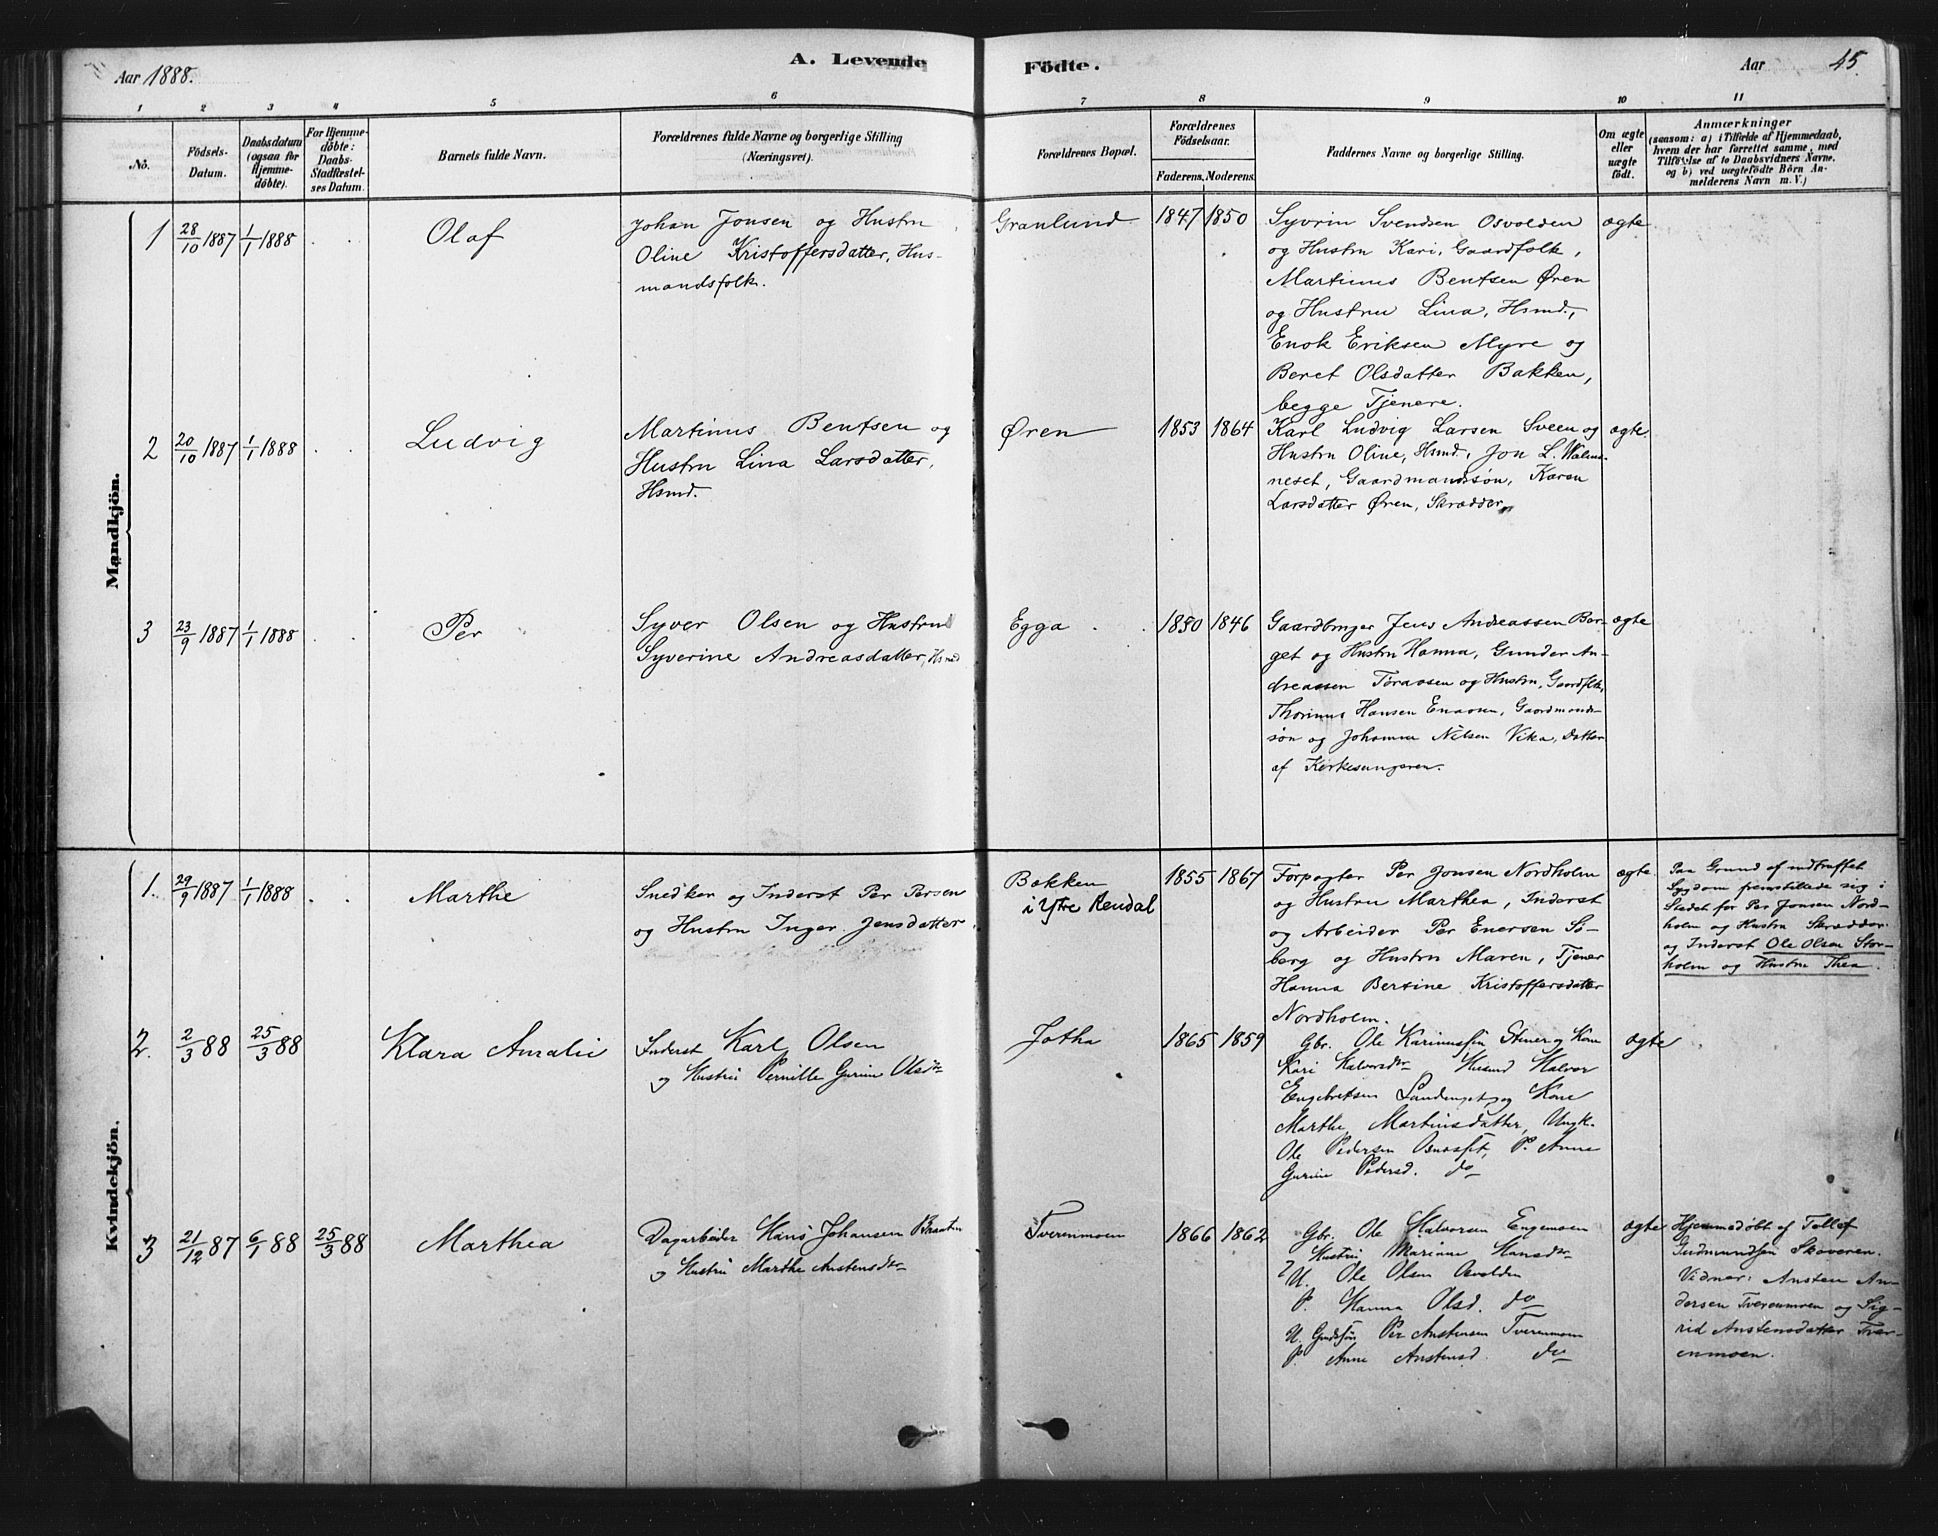 Aar 1888.
A. Levende Födte.
Aar 45.
1 2 3 4 5 6 7 8 9 10 11
No.
Födsels-Datum.
Daabsdatum (ogsaa for Hjemmedöbte).
For Hjemmedöbte: Daabs-Stadfæstelses Datum.
Barnets fulde Navn.
Forældrenes fulde Navne og borgerlige Stilling (Næringsvei).
Forældrenes Bopæl.
Forældrenes Födselsaar.
Faderens. Moderens.
Faddernes Navne og borgerlige Stilling.
Om ægte eller uægte födt.
Anmærkninger
(saasom: a) i Tilfælde af Hjemmedaab, hvem der har forrettet samme, med Tilföielse af to Daabsvidners Navne, og b) ved uægtefödte Börn Anmelderens Navn m. V.)
Mandkjön.
1 28/10 1887 1/1 1888 . . Olaf
Johan Jonsen og Hustru
Oline Kristoffersdatter, Hus-
mandsfolk.
Granlund 1847 1850
Syvrin Svendsen Osvolden
og Hustru Kari, Gaardfolk,
Martinus Bentsen Øren
og Hustru Lina, Hsmd.,
Enok Eriksen Myre og
Beret Olsdatter Bakken,
begge Tjenere.
ægte
2 20/10 1887 1/1 1888 . . Ludvig
Martinus Bentsen og
Hustru Lina Larsdatter,
Hsmd.
Øren 1853 1864
Karl Ludvig Larsen Sveen og
Hustru Oline, Hsmd., Jon L.
neset, Gaardmandssøn, Karen
Larsdatter Øren, Skrædder
ægte
3 23/9 1887 1/1 1888 . . Per
Syver Olsen og Hustru
Syverine Andreasdatter, Hsmd
Egga 1850 1846
Gaardbruger Jens Andreassen Bor-
get og Hustru Hanna, Gunder An-
dreassen Tøraasen og Hustru, Gaardfolk,
Thorinus Hansen Enaasen, Gaardmands-
søn og Johanna Nilsen Vika, Datter
af Kirkesangeren.
ægte
Kvindekjön.
1. 29/9 1887 1/1 1888 . . Marthe
Snedker og Inderst Per Persen
og Hustru Inger Jensdatter.
Bakken
i Ytre Rendal
1855 1867
Forpagter Per Jonsen Nordholm
og Hustru Marthea, Inderst
og Arbeider Per Enersen So-
berg og Hustru Maren, Tjener
Hanna Bersine Kristoffersdatter
Nordholm.
ægte
Paa Grund af indtruffet
Sygdom fremstillede sig i
Stedet for Per Jonsen Nord-
holm og Hustru Skrædder
og Inderst Ole Olsen Stor-
holm og Hustru Thea.
2. 2/3 88 25/3 88 Klara Amalie
Inderst Karl Olsen
og Hustru Pernille Gurine Olsdtr
Jotha 1865 1859
Gbr. Ole Karinussøn Stener og Kone
Kari Halvorsdtr Husmd Halvor
Engebretsen Sandenget og Kone
Marthe Martinsdatter, Ungk.
Ole Pedersen P. Anne
Gurine Pedersd. do
ægte
3 21/12 87 6/1 88 25/3 88 Marthea
Dagarbeider Hans Johansen
og Hustru Marthe Austensdtr
Tverenmoen 1866 1862
Gbr. Ole Halvorsen Engemoen
Hustru Mariane Hansdtr
U. Ole Olsen Osvolden
P. Hanna Olsd. do
U. Gaardsøn Per Austensen Tverenmoen
P. Anne Austensd. do
ægte
Hjemmedøbt af Tollef
Gudmundsen Skoveren.
Vidner: Austen An-
dersen Tverenmoen og Sig-
rid Austensdatter Tver-
enmoen.